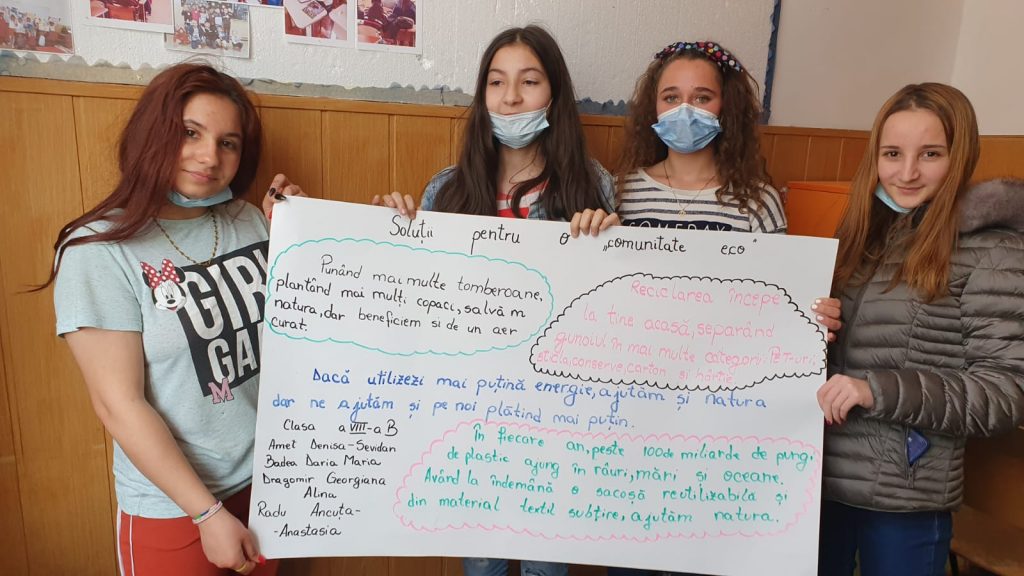 Soluții pentru o „comunitate eco"
Punând mai multe tomberoane,
plantând mai mulți copaci, salvăm
natura, dar beneficiem si de un aer
curat.
Reciclarea începe
la tine acasă, separând
gunoiul în mai multe categorii: PET-uri,
sticla, conserve, carton si hârtie.
Dacă utilizezi mai puțină energie, ajutăm și natura
dar ne ajutăm și pe noi plătind mai puțin.
În fiecare an, peste 100 de miliarde de pungi
de plastic ajung în râuri, mări și oceane.
Având la îndemână o sacoșă reutilizabilă și
din material textil subțire, ajutăm natura.
Clasa a VIII-a B
Amet Denisa-Sevdan
Badea Daria Maria
Dragomir Georgiana
Alina
Radu Ancuța-
-Anastasia
GIRL
GA
M